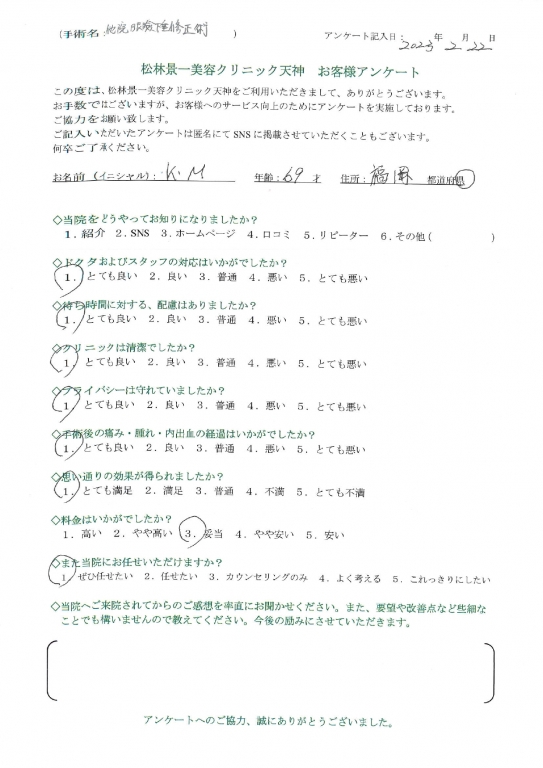 (手術名: 他院眼瞼下垂修正術 ) アンケート記入日: 2023 年 2 月 22 日
松林景一美容クリニック天神 お客様アンケート
この度は、松林景一美容クリニック天神をご利用いただきまして、ありがとうございます。
お手数ではございますが、お客様へのサービス向上のためにアンケートを実施しております。
ご協力をお願い致します。
ご記入いただいたアンケートは匿名にて SNS に掲載させていただくこともございます。
何卒ご了承ください。
お名前（イニシャル）: K.M 年齢: 69 才 住所: 福岡 都道府県
◇当院をどうやってお知りになりましたか？
1. 紹介 2. SNS 3. ホームページ 4. 口コミ 5. リピーター 6. その他 ( )
◇ドクタおよびスタッフの対応はいかがでしたか？
1. とても良い 2. 良い 3. 普通 4. 悪い 5. とても悪い
◇待ち時間に対する、配慮はありましたか？
1. とても良い 2. 良い 3. 普通 4. 悪い 5. とても悪い
◇クリニックは清潔でしたか？
1. とても良い 2. 良い 3. 普通 4. 悪い 5. とても悪い
◇プライバシーは守れていましたか？
1. とても良い 2. 良い 3. 普通 4. 悪い 5. とても悪い
◇手術後の痛み・腫れ・内出血の経過はいかがでしたか？
1. とても良い 2. 良い 3. 普通 4. 悪い 5. とても悪い
◇思い通りの効果が得られましたか？
1. とても満足 2. 満足 3. 普通 4. 不満 5. とても不満
◇料金はいかがでしたか？
1. 高い 2. やや高い 3. 妥当 4. やや安い 5. 安い
◇また当院にお任せいただけますか？
1. ぜひ任せたい 2. 任せたい 3. カウンセリングのみ 4. よく考える 5. これっきりにしたい
◇当院へご来院されてからのご感想を率直にお聞かせください。また、要望や改善点など些細な
ことでも構いませんので教えてください。今後の励みにさせていただきます。
アンケートへのご協力、誠にありがとうございました。